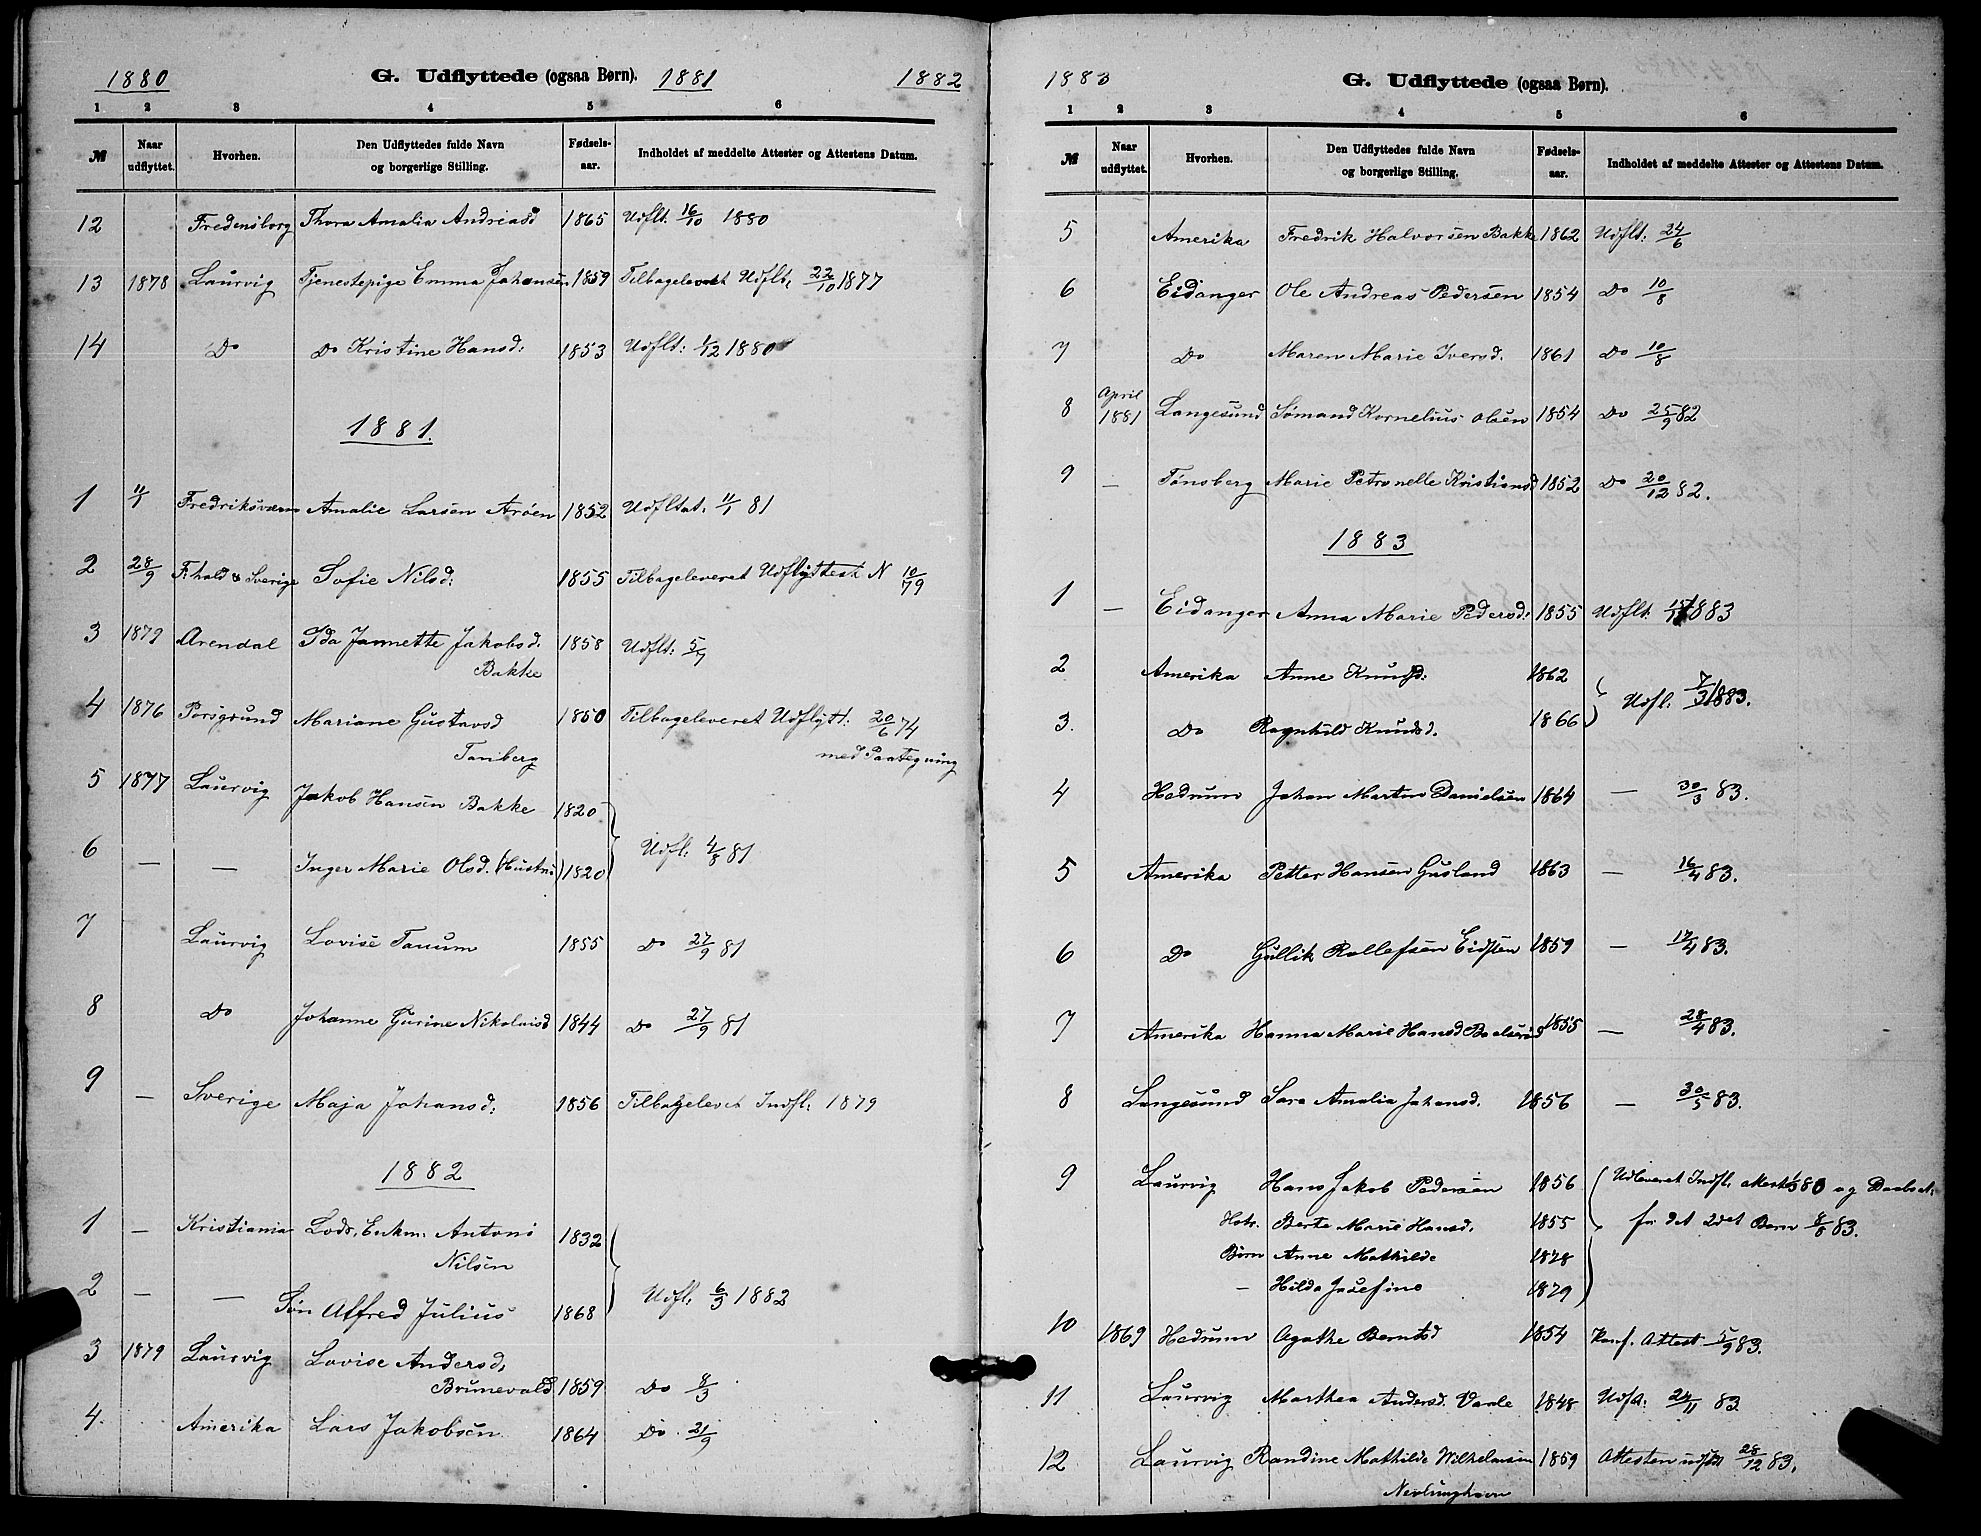 1880 G. Udflyttede (ogsaa Børn). 1881 1882
1 2 3 4 5 6
№ Naar udflyttet. Hvorhen. Den Udflyttedes fulde Navn og borgerlige Stilling. Fødselsaar. Indholdet af meddelte Attester og Attestens Datum.
12 Fredensborg Thora Amalia Andreasd 1865 Udflt. 16/10 1880
13 1878 Laurvig Tjenestepige Emma Johansen 1859 Tilbageleveret Udflt. 22/10 1877
14 Do Do Kristine Hansd: 1853 Udflt: 1/12 1880
1881.
1 11/1 Fredriksværn Amalie Larsen Arøen 1852 Udfltat. 11/1 81
2 28/9 F:hald & Sverige Sofie Nilsd: 1855 Tilbageleveret Udflyttest N 10/79
3 1879 Arendal Ida Jannette Jakobsd. 1858 Udflt: 5/7
Bakke
4 1876 Porsgrund Mariane Gustavsd 1850 Tilbageleveret Udflytt: 20/6 74
Tanberg med Paategning
5 1877 Laurvig Jakob Hansen Bakke 1820
6 — — Inger Marie Olsd. (Hustru) 1820 Udfl. 4/8 81
7 Laurvig Lovise Tanum 1855 Do 27/9 81
8 Do Johanne Gurine Nikolaisd 1844 Do 27/9 81
9 — Sverige Maja Johansd: 1856 Tilbagelevet Indfl: 1879
1882
1 — Kristiania Lods, Enkm: Antoni 1832
Nilsen
2 — — Søn Alfred Julius 1868 Udfl: 6/3 1882
3 1879 Laurvig Lovise Andersd,
Brunevald 1859 Do 8/3
4. Amerika Lars Jakobsen 1864 Do. 21/9
1883 G. Udflyttede (ogsaa Børn).
1 2 3 4 5 6
№ Naar udflyttet. Hvorhen. Den Udflyttedes fulde Navn og borgerlige Stilling. Fødselsaar. Indholdet af meddelte Attester og Attestens Datum.
5 Amerika Fredrik Halvorsen Bakke 1862 Udflt: 24/6
6 Eidanger Ole Andreas Pedersen 1854 Do 10/8
7 Do Maren Marie Iversd. 1861 Do 10/8
8 April 1881 Langesund Sømand Kornelius Olsen 1854 Do 25/9 82
9 — Tønsberg Marie Petronelle Kristiansd 1852 Do 20/12 82.
1883
1 — Eidanger Anna Marie Pedersd: 1855 Udflt: 1883
2 Amerika Anne Knudsd: 1862
3. Do Ragnhild Knudsd. 1866 Udfl: 7/3 1883.
4 Hedrum Johan Martin Danielsen 1864 — 30/3 83.
5 Amerika Petter Hansen Gusland 1863 — 16/4 83.
6 Do Gullik Rollefsen Eidsten 1859 — 17/4 83.
7 Amerika Hanna Marie Hansd 1855 — 28/4 83.
8 Langesund Sara Amalia Johansd. 1856 — 30/5 83.
9 Laurvig Hans Jakob Pedersen 1856 Udleveret Indfl. og
Berte Marie Hansd. 1855 for det 2det Barn 8/8 83.
Børn Anne Mathilde 1878
— Hilda Josefine 1879
10 1869 Hedrum Agathe Berntsd 1854 Konf. Attest 5/9 83.
11 Laurvig Marthea Andersd. Vaale 1848 Udfst: 24/11 83
12 Laurvig Randine Mathilde Wilhelmsen 1859 Attesten udst 28/12 83.
Nevlunghavn